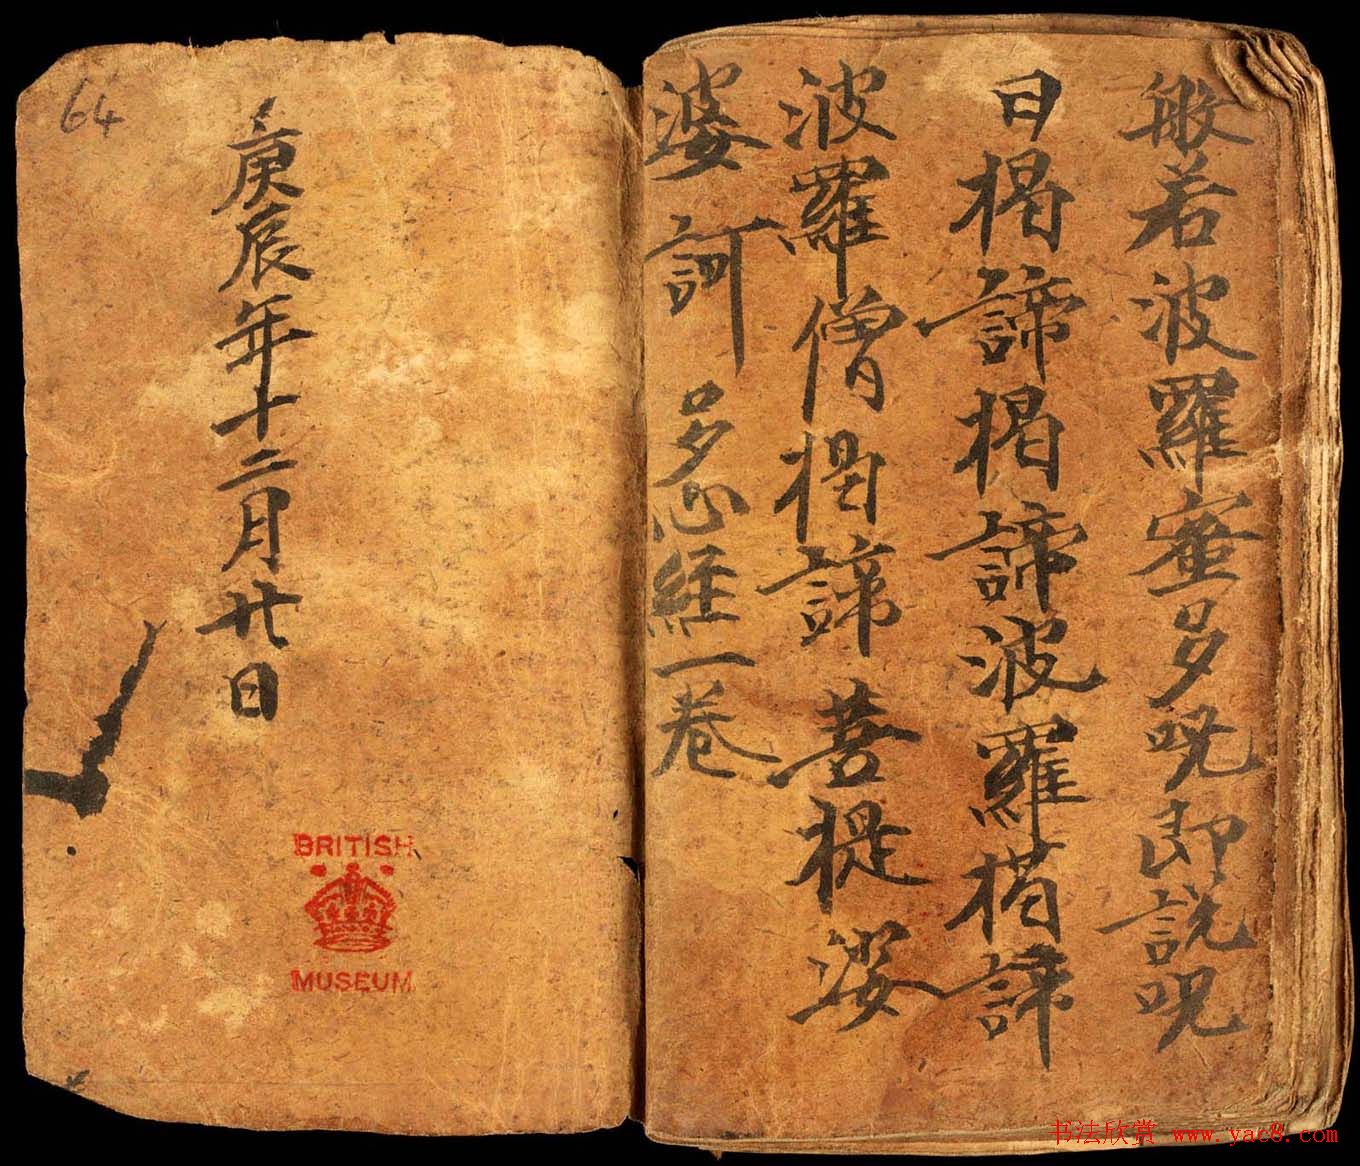 般若波羅蜜多呪即説呪
曰揭諦揭諦波羅揭諦
波羅僧揭諦菩提婆
婆訶 多心経一卷
64
庚辰年十二月廿日
BRITISH
MUSEUM
书法欣赏 www.yac8.com